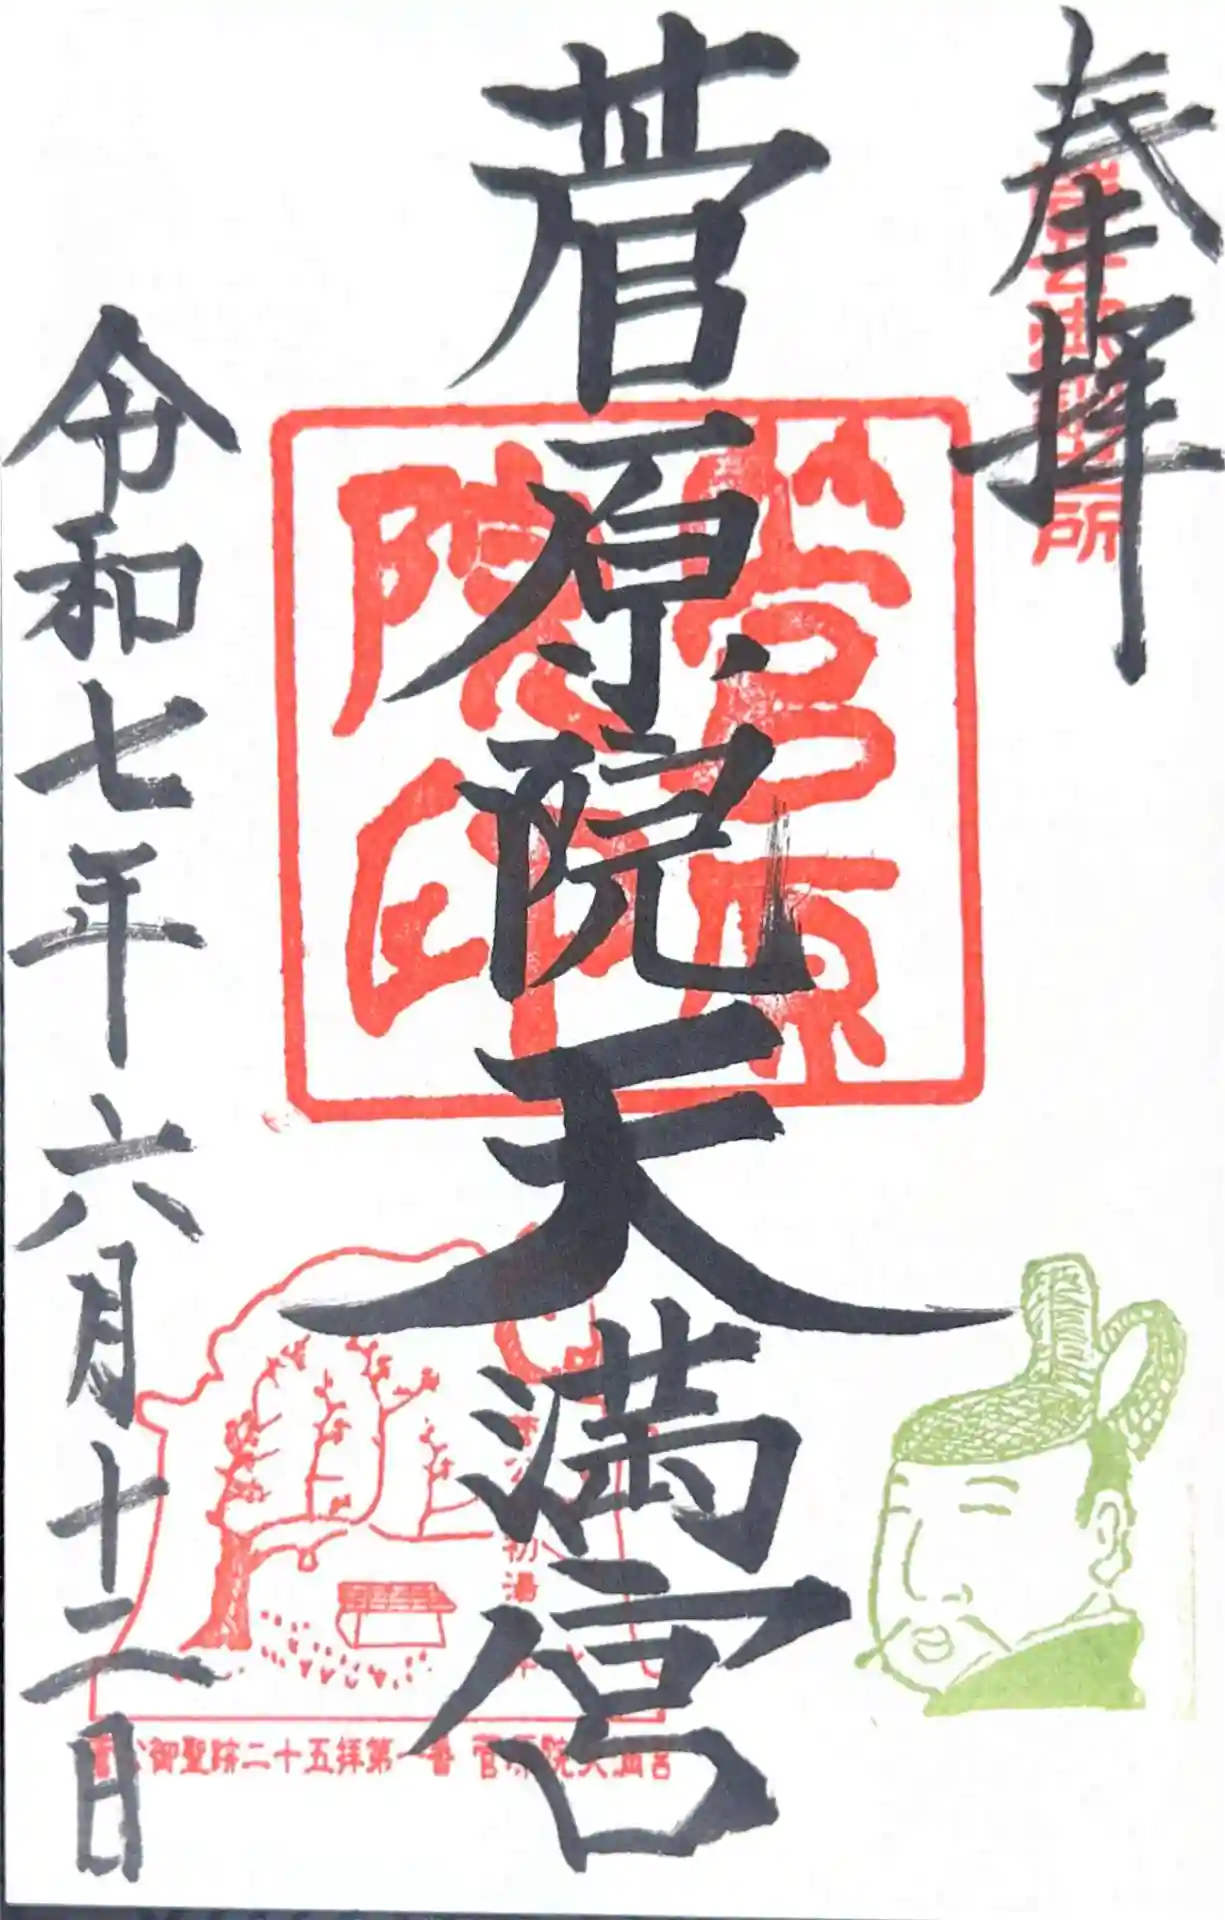 奉拝
菅原院天満宮
菅原院印
令和七年六月十二日
初湯
菅公御聖跡二十五拝第一番 菅原院天満宮